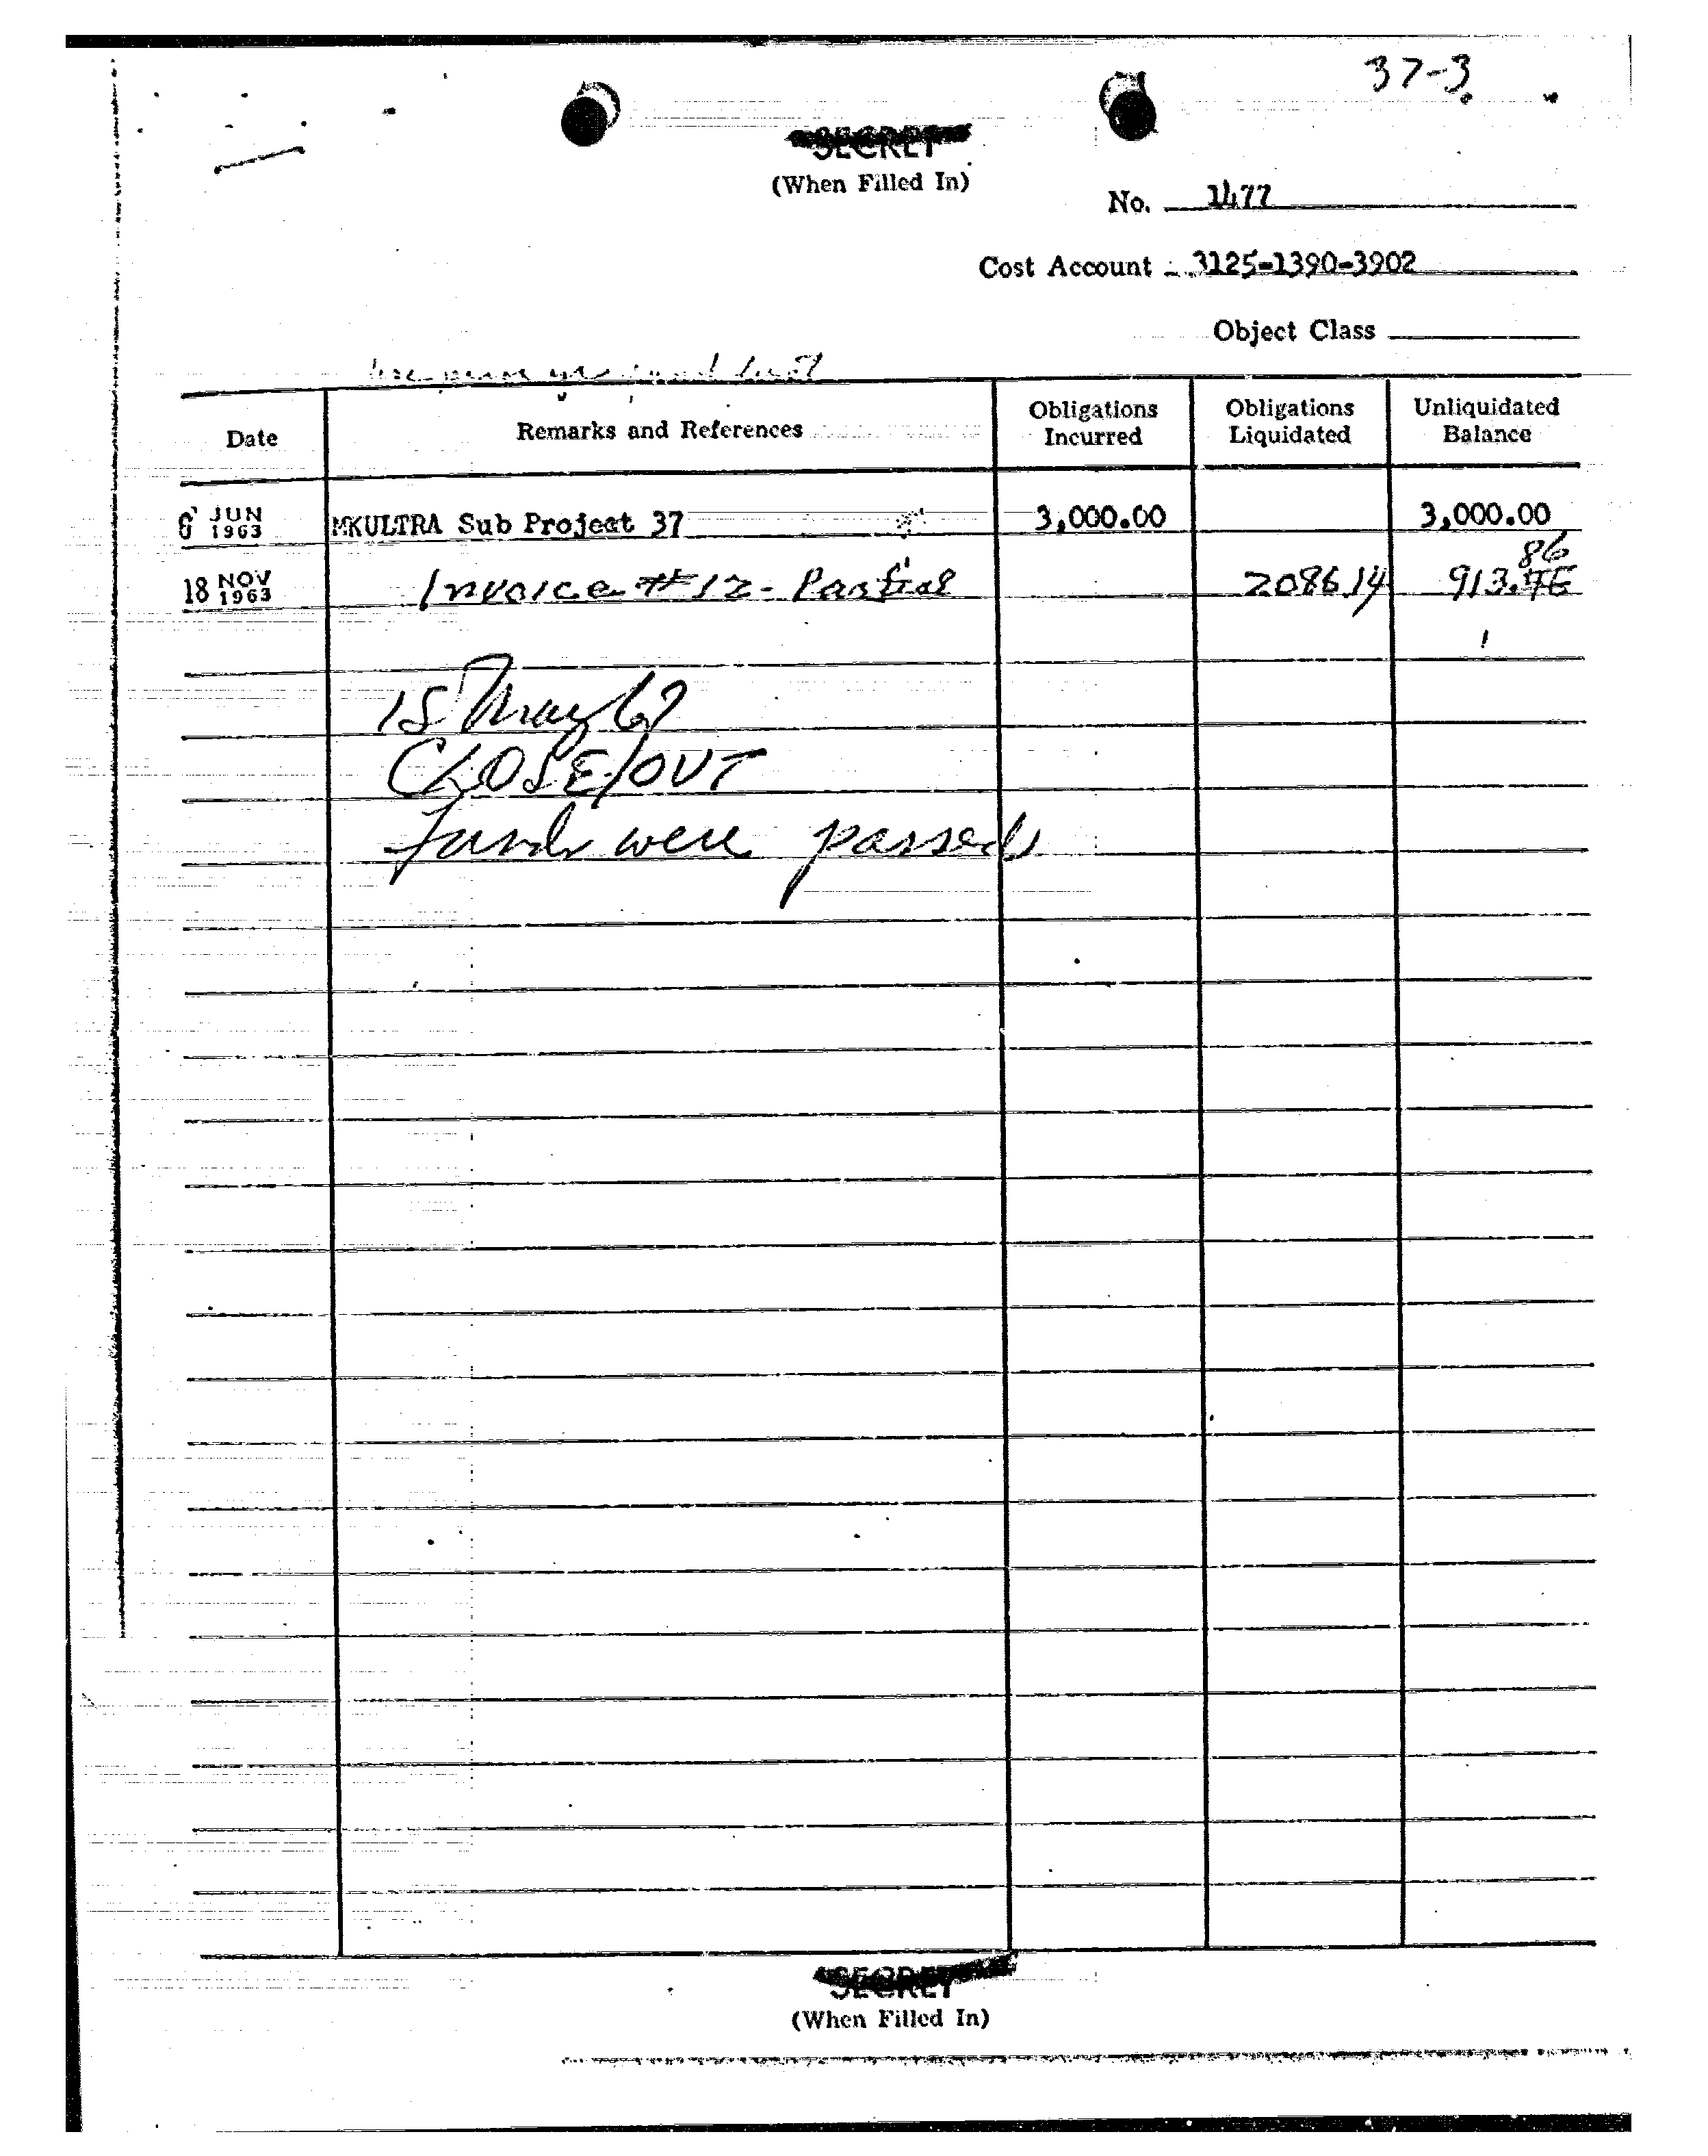 37-3
SECRET
(When Filled In)
No. 1477
Cost Account 3125-1390-3902
Object Class
Date Remarks and References Obligations Incurred Obligations Liquidated Unliquidated Balance
6 JUN 1963 MKULTRA Sub Project 37 3,000.00 3,000.00
86
18 NOV 1963 Invoice #12- Partial 2086.14 913.
15 May 67
CLOSE/OUT
Funds were passed
SECRET
(When Filled In)